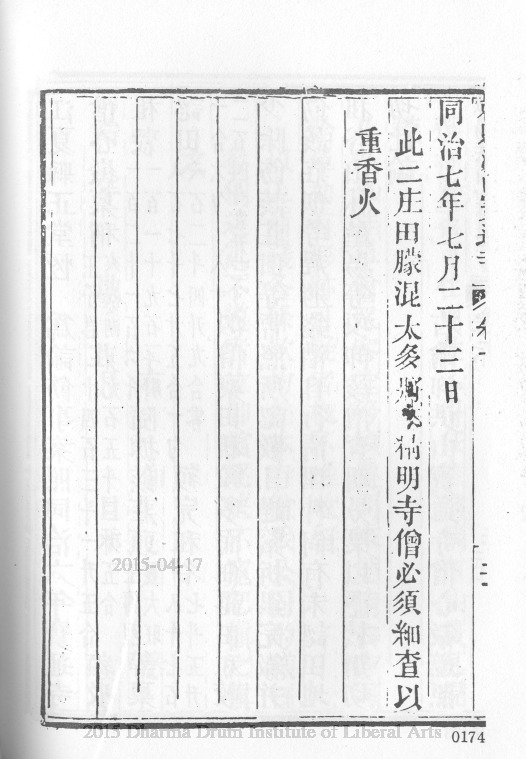 同治七年七月二十三日
此二庄田朦混太多精明寺僧必須細查以
重香火
2015-04-17
2015 Dharma Drum Institute of Liberal Arts
0174